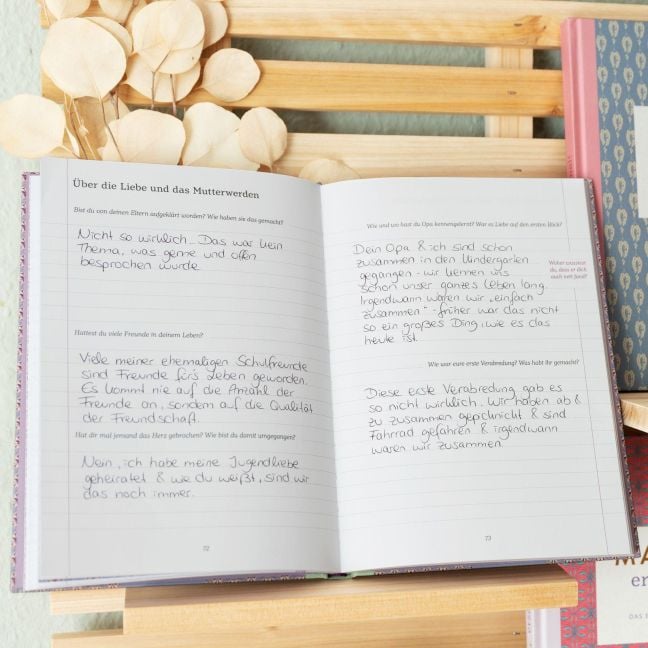 Über die Liebe und das Mutterwerden
Bist du von deinen Eltern aufgeklärt worden? Wie haben sie das gemacht?
Nicht so wirklich... Das war kein
Thema, was gerne und offen
besprochen wurde.
Hattest du viele Freunde in deinem Leben?
Viele meiner ehemaligen Schulfreunde
sind Freunde fürs Leben geworden.
Es kommt nie auf die Anzahl der
Freunde an, sondern auf die Qualität
der Freundschaft.
Hat dir mal jemand das Herz gebrochen? Wie bist du damit umgegangen?
Nein, ich habe meine Jugendliebe
geheiratet & wie du weißt, sind wir
das noch immer.
72
Wie und wo hast du Opa kennengelernt? War es Liebe auf den ersten Blick?
Dein Opa & ich sind schon
zusammen in den Kindergarten
gegangen - wir kennen uns
schon unser ganzes Leben lang.
Irgendwann waren wir „einfach
zusammen“ - früher war das nicht
so ein großes Ding, wie es das
heute ist.
Woher wusstest
du, dass er dich
auch nett fand?
Wie war eure erste Verabredung? Was habt ihr gemacht?
Diese erste Verabredung gab es
so nicht wirklich. Wir haben ab &
zu zusammen gepicknickt & sind
Fahrrad gefahren & irgendwann
waren wir zusammen.
73
MA
er
DAS E